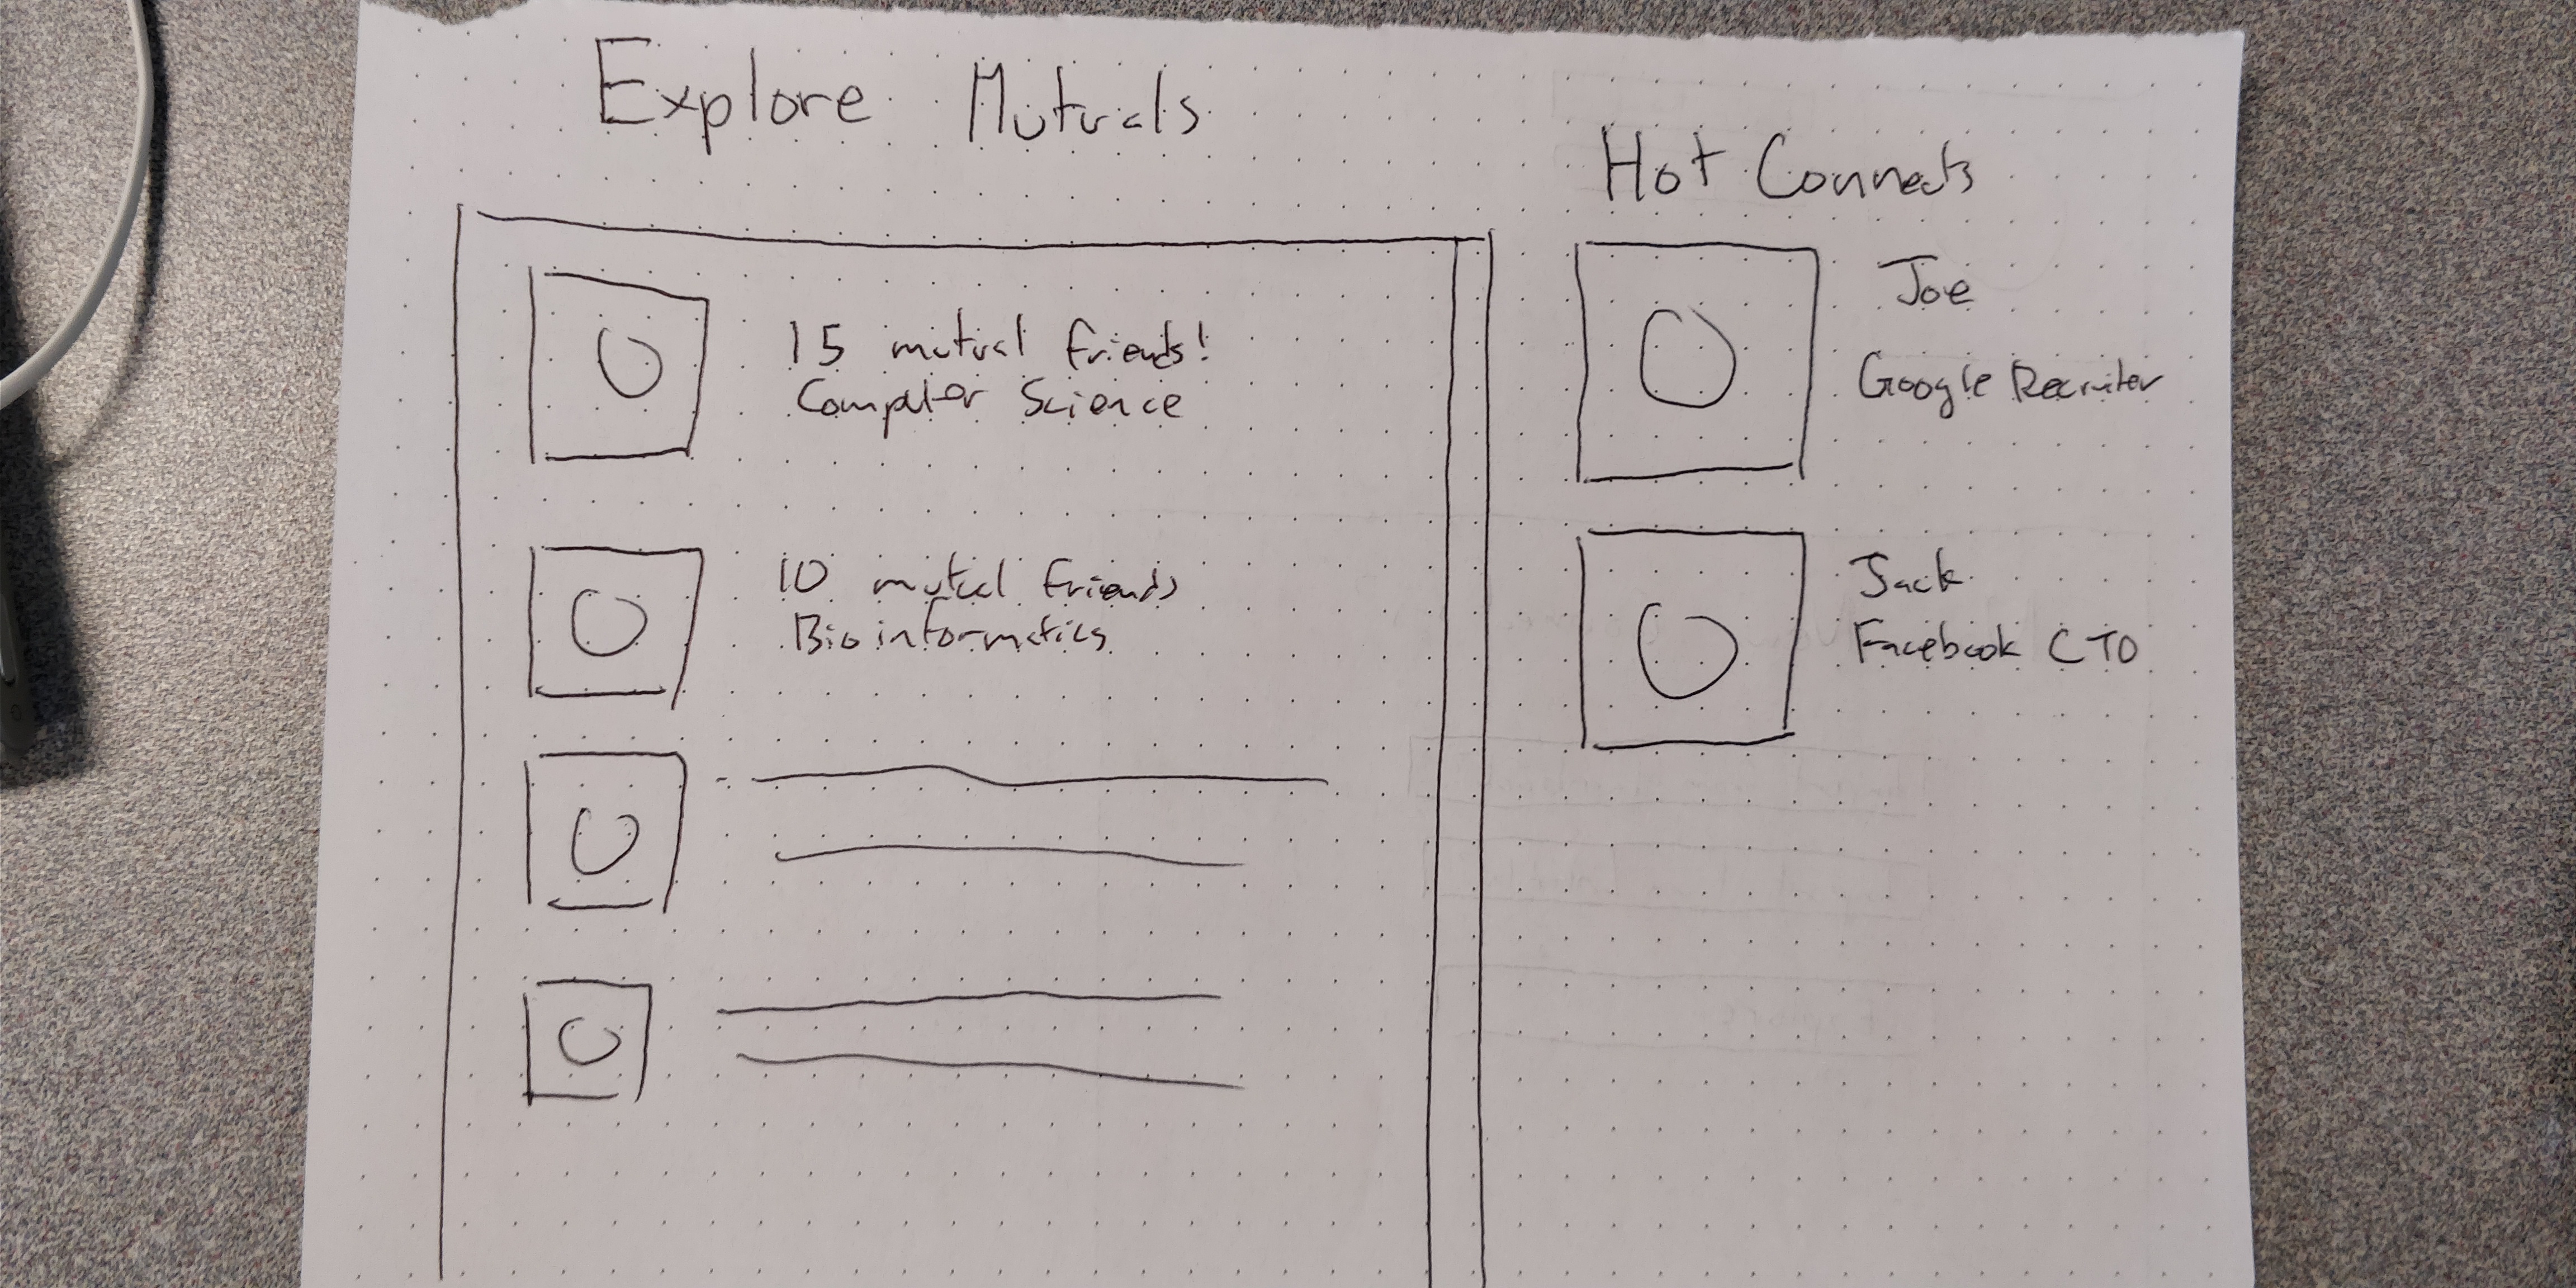 Explore Mutuals
15 mutual friends!
Computer Science
10 mutual friends
Bioinformatics
Hot Connects
Joe
Google Recruiter
Jack
Facebook CTO